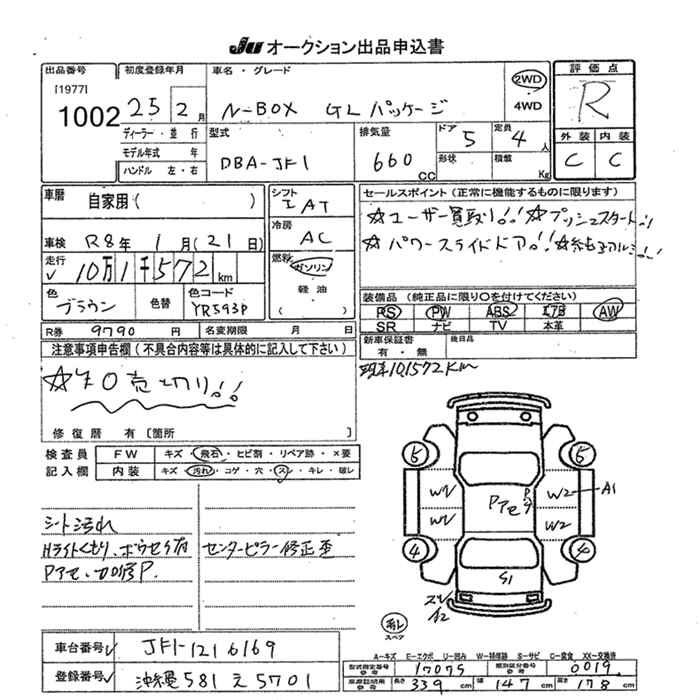 JU オークション出品申込書
出品番号
[1977]
1002
初度登録年月
25 2月
ディーラー・並行
モデル年式 年
ハンドル 左・右
車名・グレード
N-BOX GLパッケージ
2WD
4WD
型式
DBA-JF1
排気量
660 cc
ドア
5
形状
定員
4人
積載
Kg
評価点
R
外装 内装
C C
車歴
自家用( )
車検 R8年 1月(21日)
走行
10万1千572km
色
ブラウン
色替
色コード
YR593P
R券 9790円
名変期限 月 日
シフト
I AT
冷房
AC
燃料
ガソリン
軽油
( )
セールスポイント(正常に機能するものに限ります)
☆ユーザー買取り!! ☆プッシュスタート!!
☆パワースライドドア!! ☆純正アルミ!!
装備品(純正品に限り○を付けてください)
PS PW ABS エアB AW
SR ナビ TV 本革
新車保証書
有・無
後日品
現車101572Km
注意事項申告欄(不具合内容等は具体的に記入して下さい)
☆¥0売切り!!
修復歴 有 [箇所
検査員
記入欄
FW キズ・飛石・ヒビ割・リペア跡・×要
内装 キズ・汚れ・コゲ・穴・スレ・キレ・破レ
シート汚れ
Hライトくもり、ボウセイ有
Pアセ、加修P.
センターピラー修正歪
5 5
W1 W2 A1
W1 W2
Pアセ
4 4
S1
A2
スペア
A-キズ E-エクボ U-凹み W-補修跡 S-サビ C-腐食 XX-交換済
車台番号 JF1-1216169
登録番号 沖縄581え5701
型式指定番号 17075
類別区分番号 0019
長さ 339cm 幅 147cm 高さ 178cm